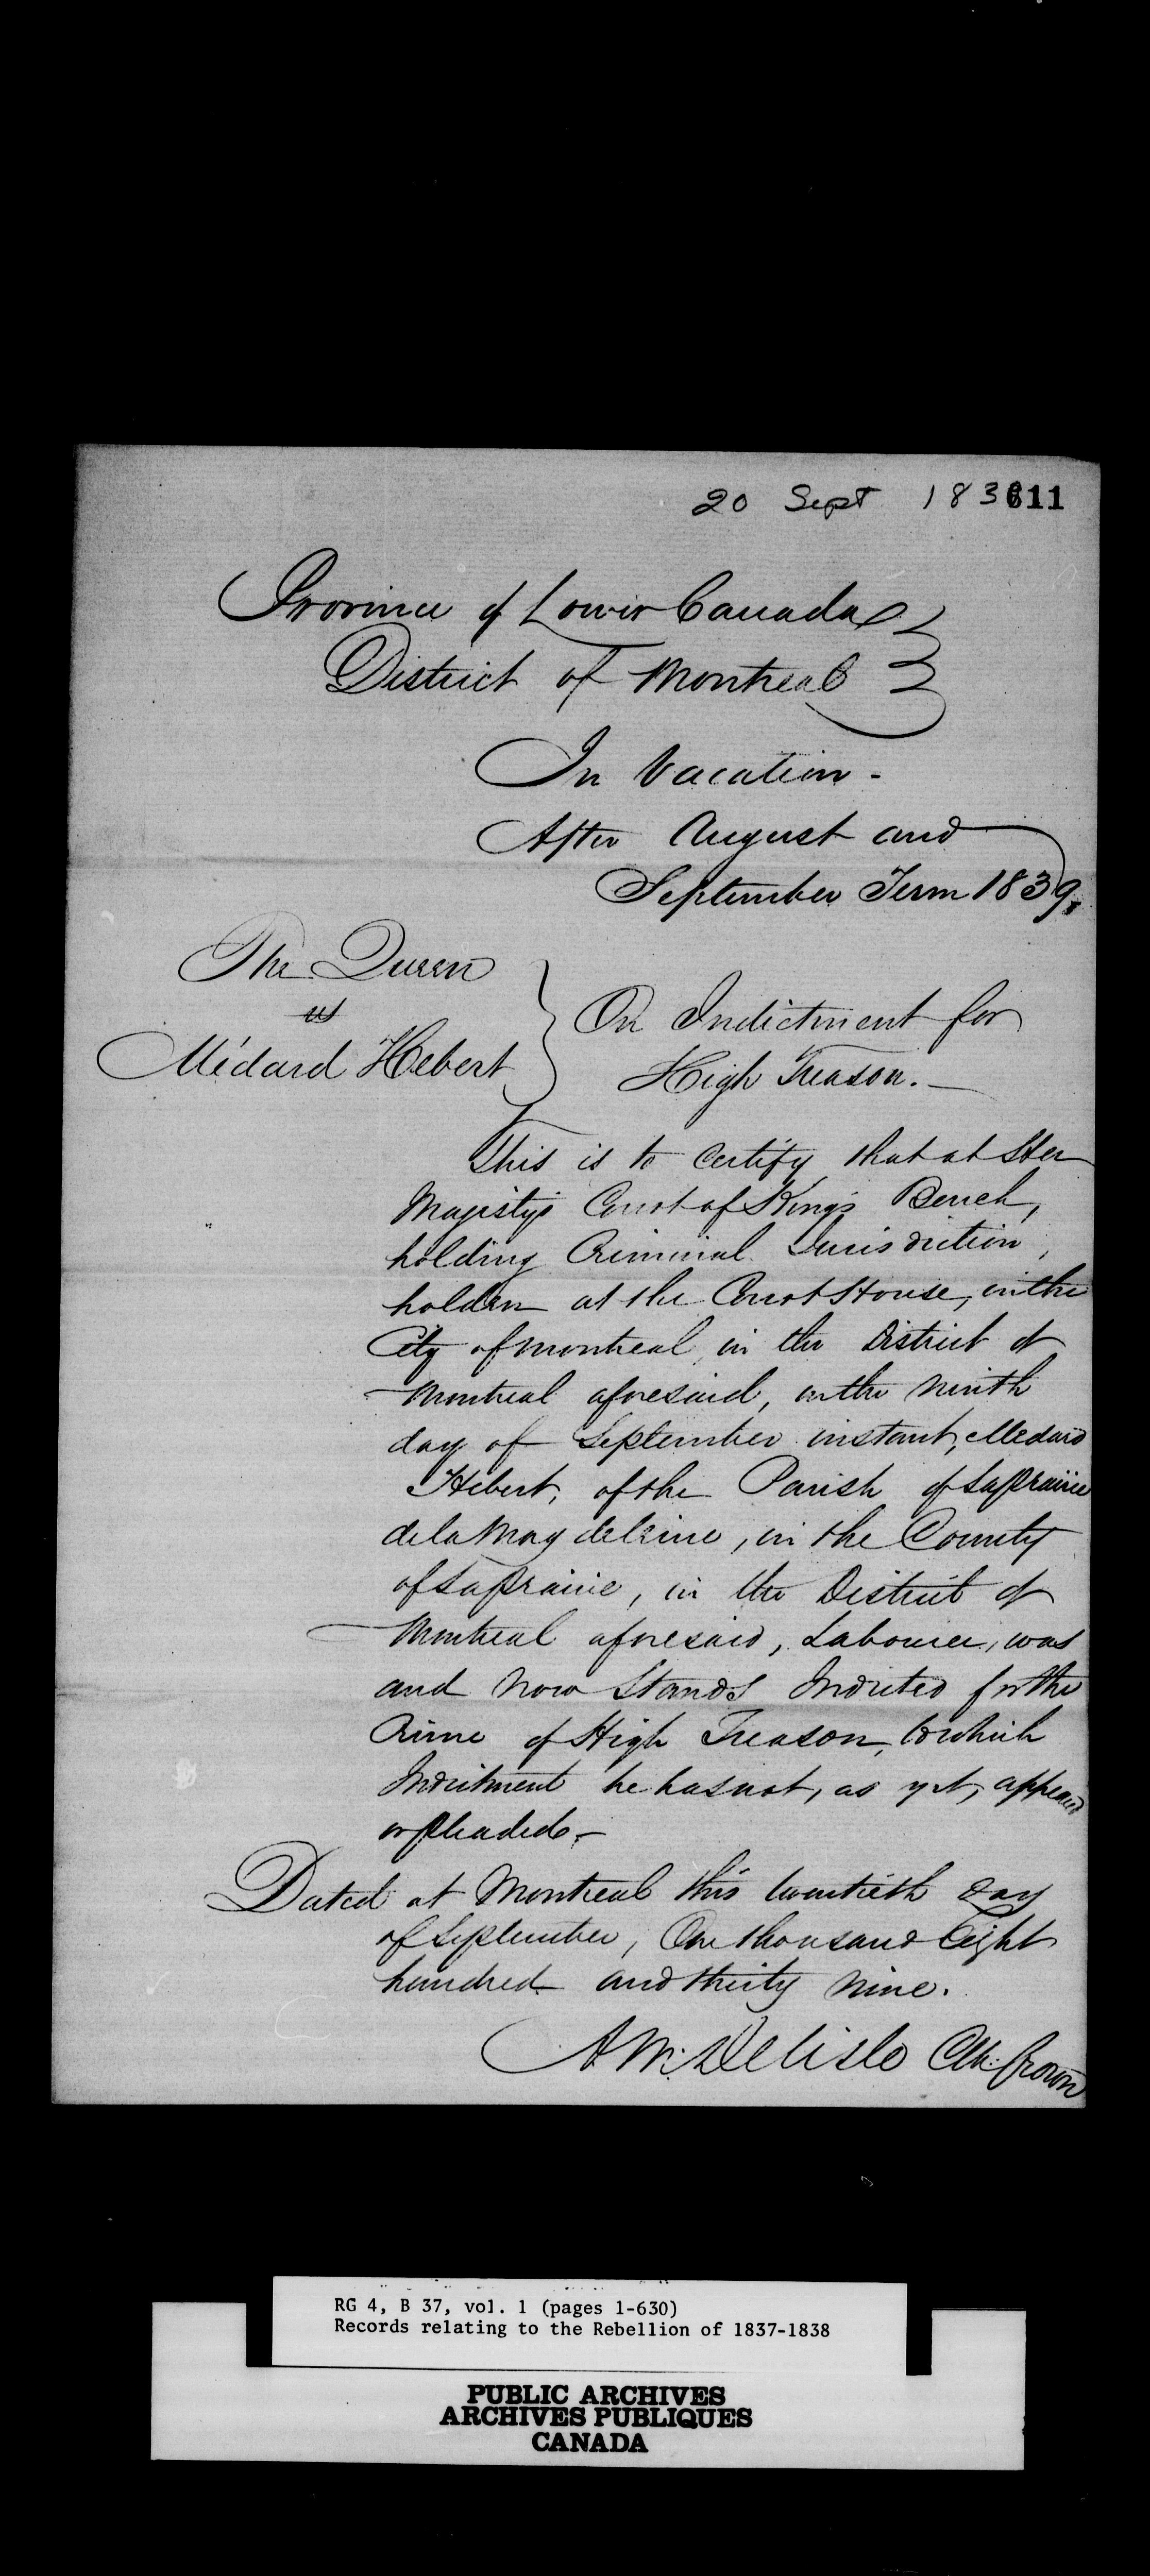 20 Sept 183
611
Province of Lower Canada
District of Montreal
In Vacation -
After August and
September Term 1839,
The Queen
vs
Médard Hebert
On Indictment for
High Treason. -
This is to Certify that at Her
Majesty's Court of King's Bench,
holding Criminal Jurisdiction,
holden at the Court House, in the
City of Montreal, in the District of
Montreal aforesaid, on the ninth
day of September instant, Medard
Hebert, of the Parish of Laprairie
de la Magdeleine, in the County
of Laprairie, in the District of
Montreal aforesaid, Labourer, was
and now Stands Indicted for the
Crime of High Treason, to which
Indictment he has not, as yet, appeared
or pleaded. -
Dated at Montreal this twentieth day
of September, One thousand Eight
hundred and thirty nine.
A M. Delisle Clk: Crown
RG 4, B 37, vol. 1 (pages 1-630)
Records relating to the Rebellion of 1837-1838
PUBLIC ARCHIVES
ARCHIVES PUBLIQUES
CANADA